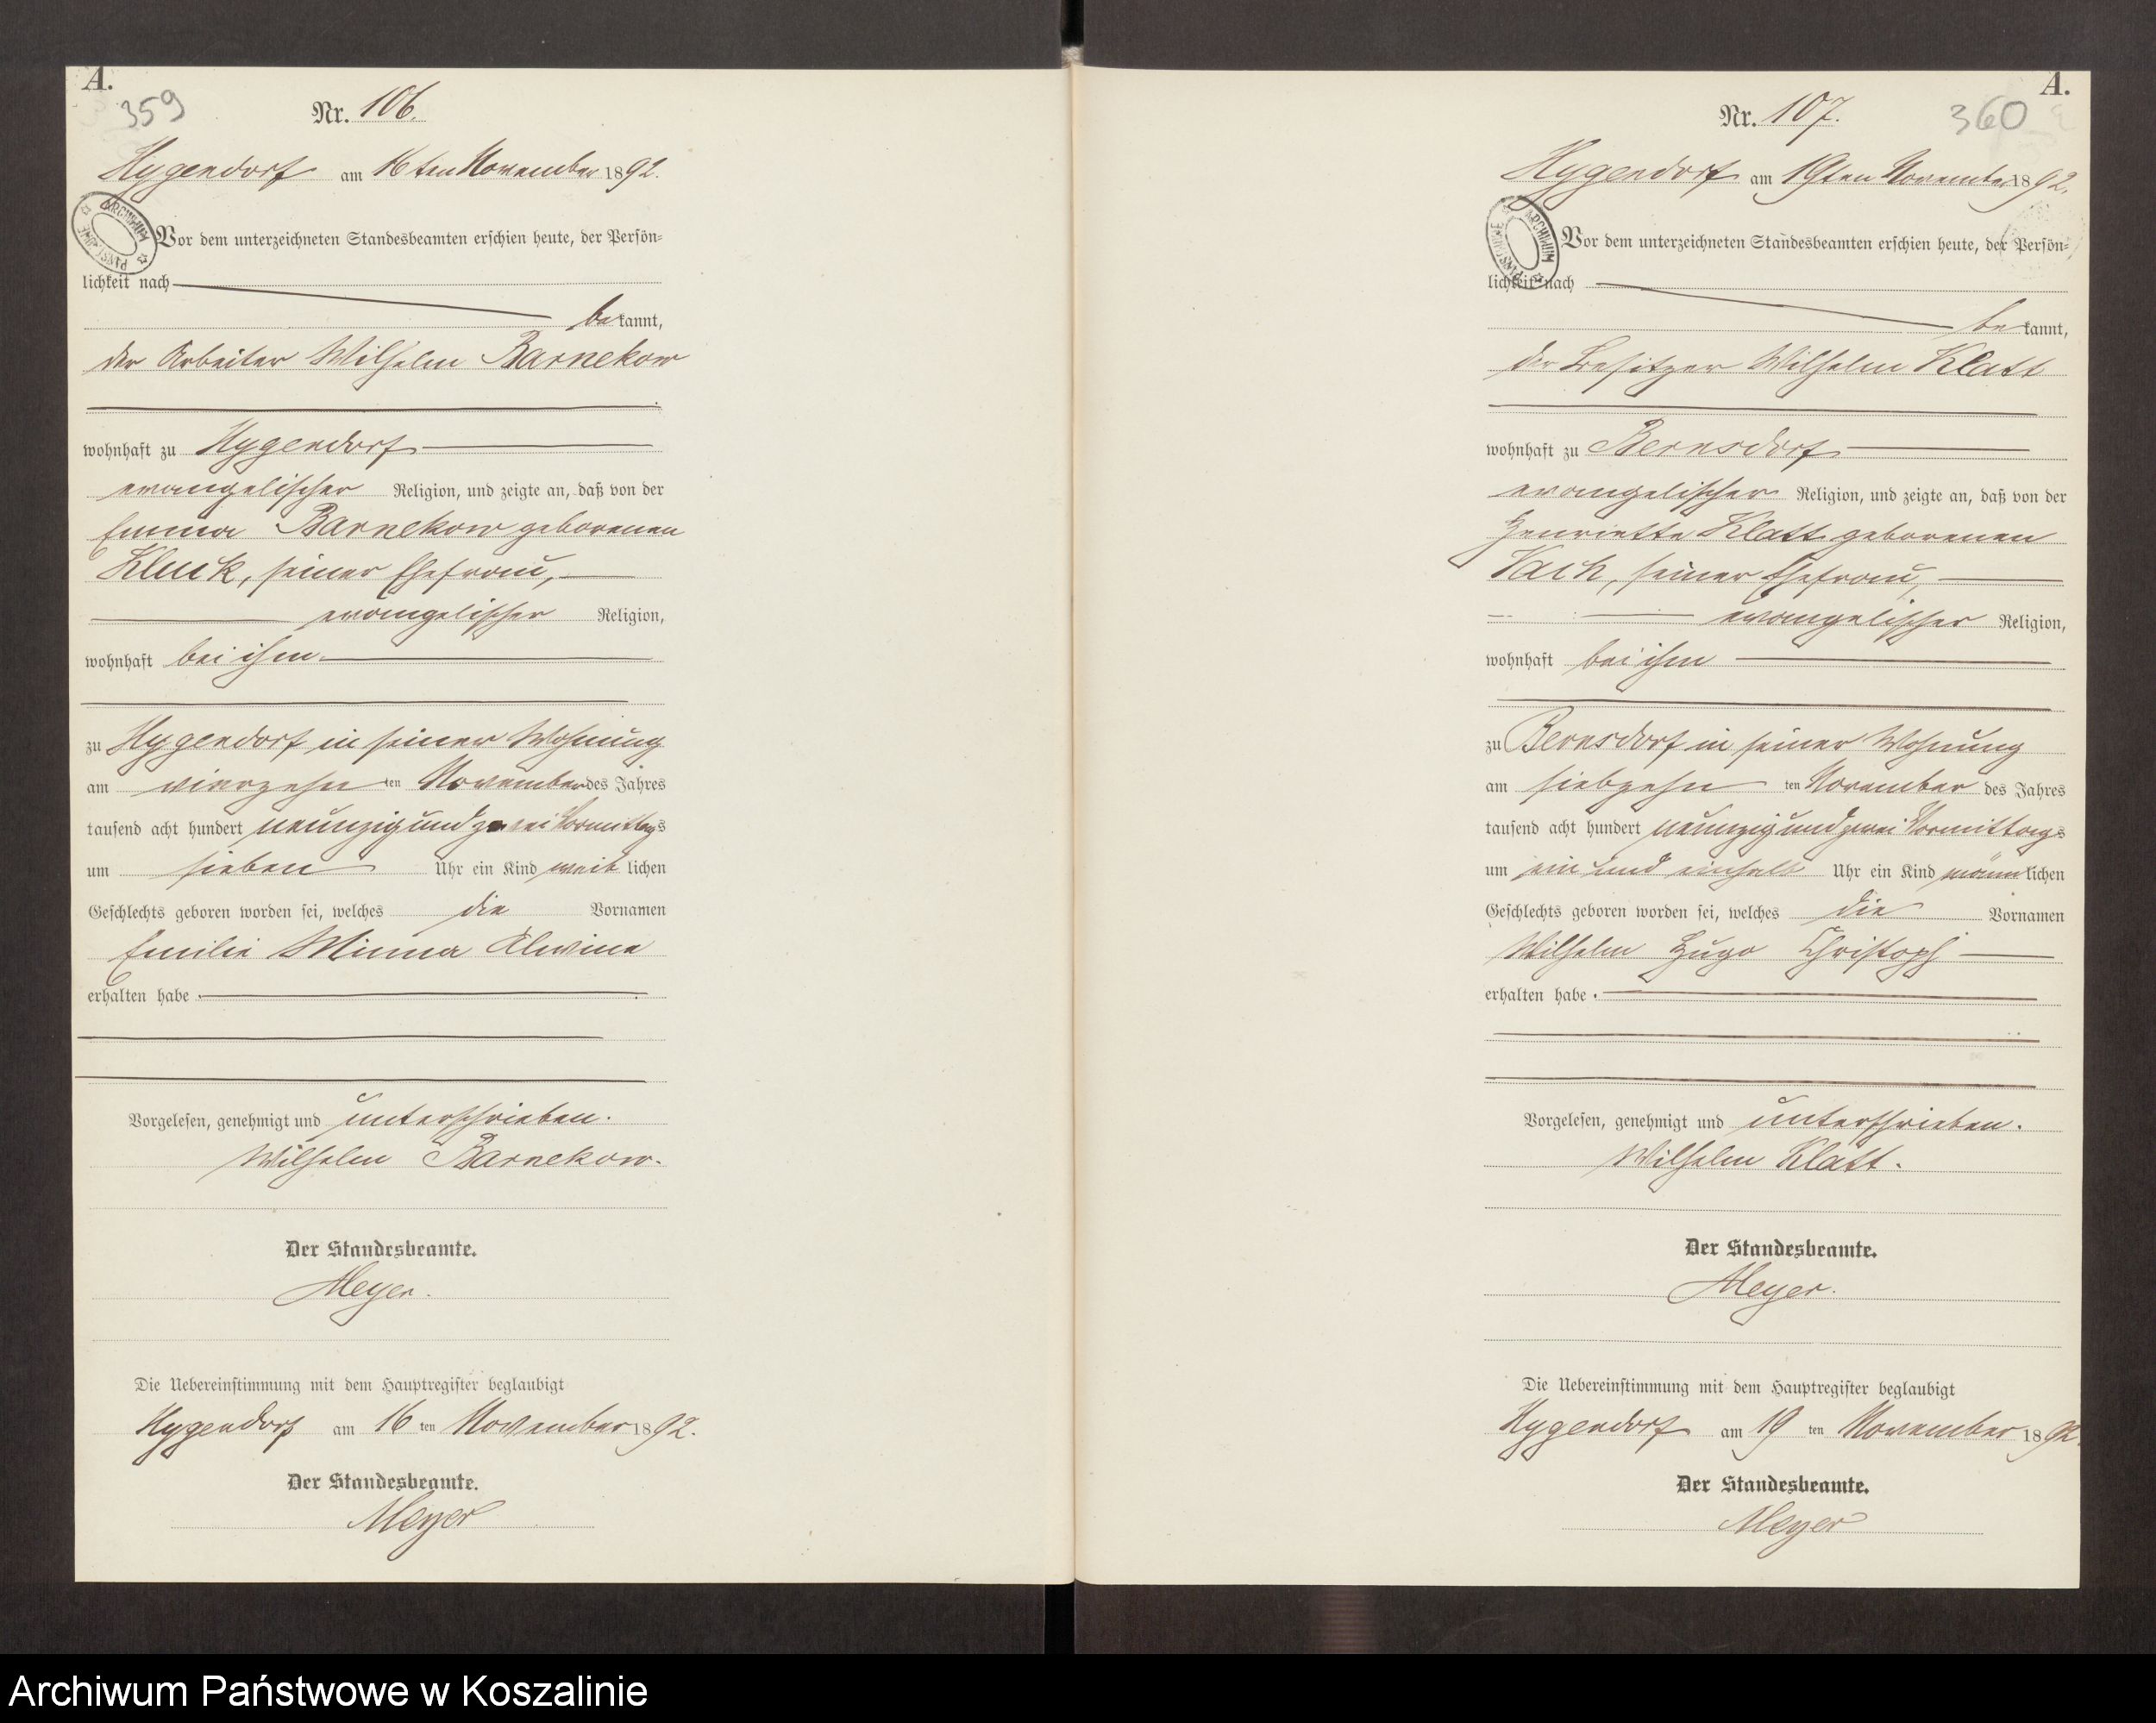 A.
359
Nr. 106.
Hygendorf am 16ten November 1892.
ARCHIWUM PAŃSTWOWE
Vor dem unterzeichneten Standesbeamten erschien heute, der Persön-
lichkeit nach
bekannt,
der Arbeiter Wilhelm Barnekow
wohnhaft zu Hygendorf
evangelischer Religion, und zeigte an, daß von der
Emma Barnekow geborenen
Kluck, seiner Ehefrau,
evangelischer Religion,
wohnhaft bei ihm
zu Hygendorf in seiner Wohnung
am vierzehn ten November des Jahres
tausend acht hundert neunzig und zwei Vormittags
um sieben Uhr ein Kind weiblichen
Geschlechts geboren worden sei, welches die Vornamen
Emilie Minna Alwine
erhalten habe.
Vorgelesen, genehmigt und unterschrieben.
Wilhelm Barnekow.
Der Standesbeamte.
Meyer.
Die Uebereinstimmung mit dem Hauptregister beglaubigt
Hygendorf am 16 ten November 1892.
Der Standesbeamte.
Meyer
A.
Nr. 107.
360
Hygendorf am 19ten November 1892.
ARCHIWUM PAŃSTWOWE
Vor dem unterzeichneten Standesbeamten erschien heute, der Persön-
lichkeit nach
bekannt,
der Besitzer Wilhelm Klatt
wohnhaft zu Bernsdorf
evangelischer Religion, und zeigte an, daß von der
Henriette Klatt geborenen
seiner Ehefrau,
evangelischer Religion,
wohnhaft bei ihm
zu Bernsdorf in seiner Wohnung
am siebzehn ten November des Jahres
tausend acht hundert neunzig und zwei Vormittags
um ein und einhalb Uhr ein Kind männlichen
Geschlechts geboren worden sei, welches die Vornamen
Wilhelm Hugo Christoph
erhalten habe.
Vorgelesen, genehmigt und unterschrieben.
Wilhelm Klatt.
Der Standesbeamte.
Meyer.
Die Uebereinstimmung mit dem Hauptregister beglaubigt
Hygendorf am 19 ten November 1892.
Der Standesbeamte.
Meyer
Archiwum Państwowe w Koszalinie